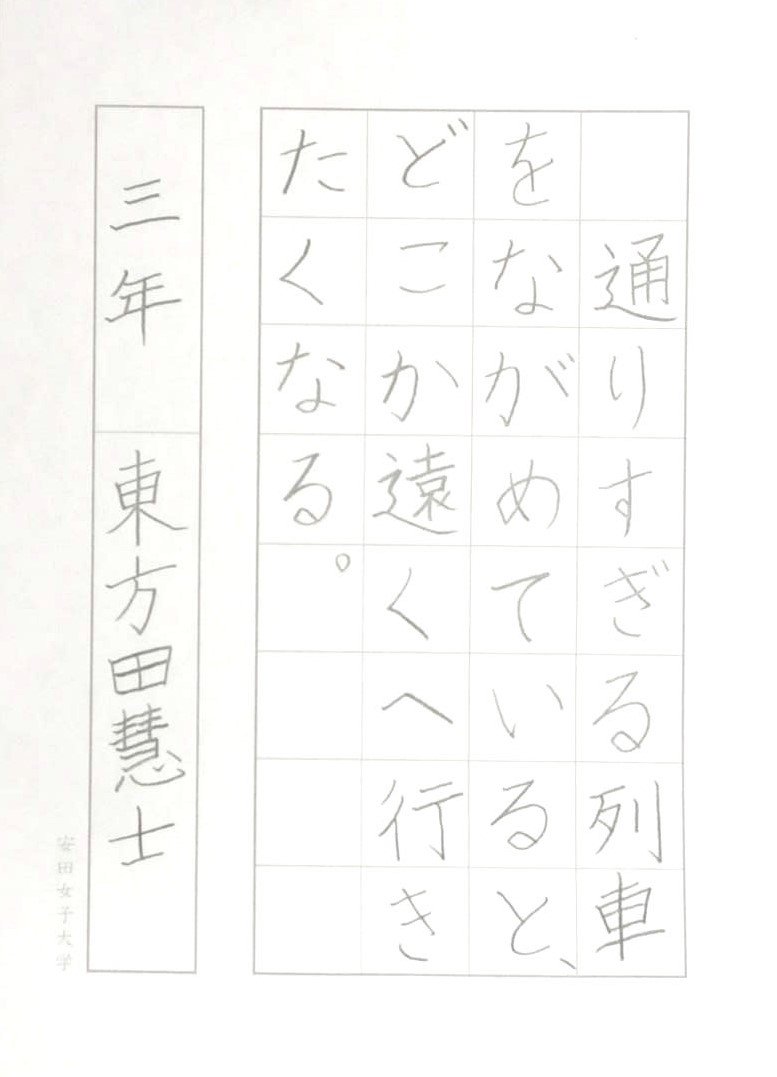 通りすぎる列車
をながめていると、
どこか遠くへ行き
たくなる。
三年　東方田慧士
安田女子大学